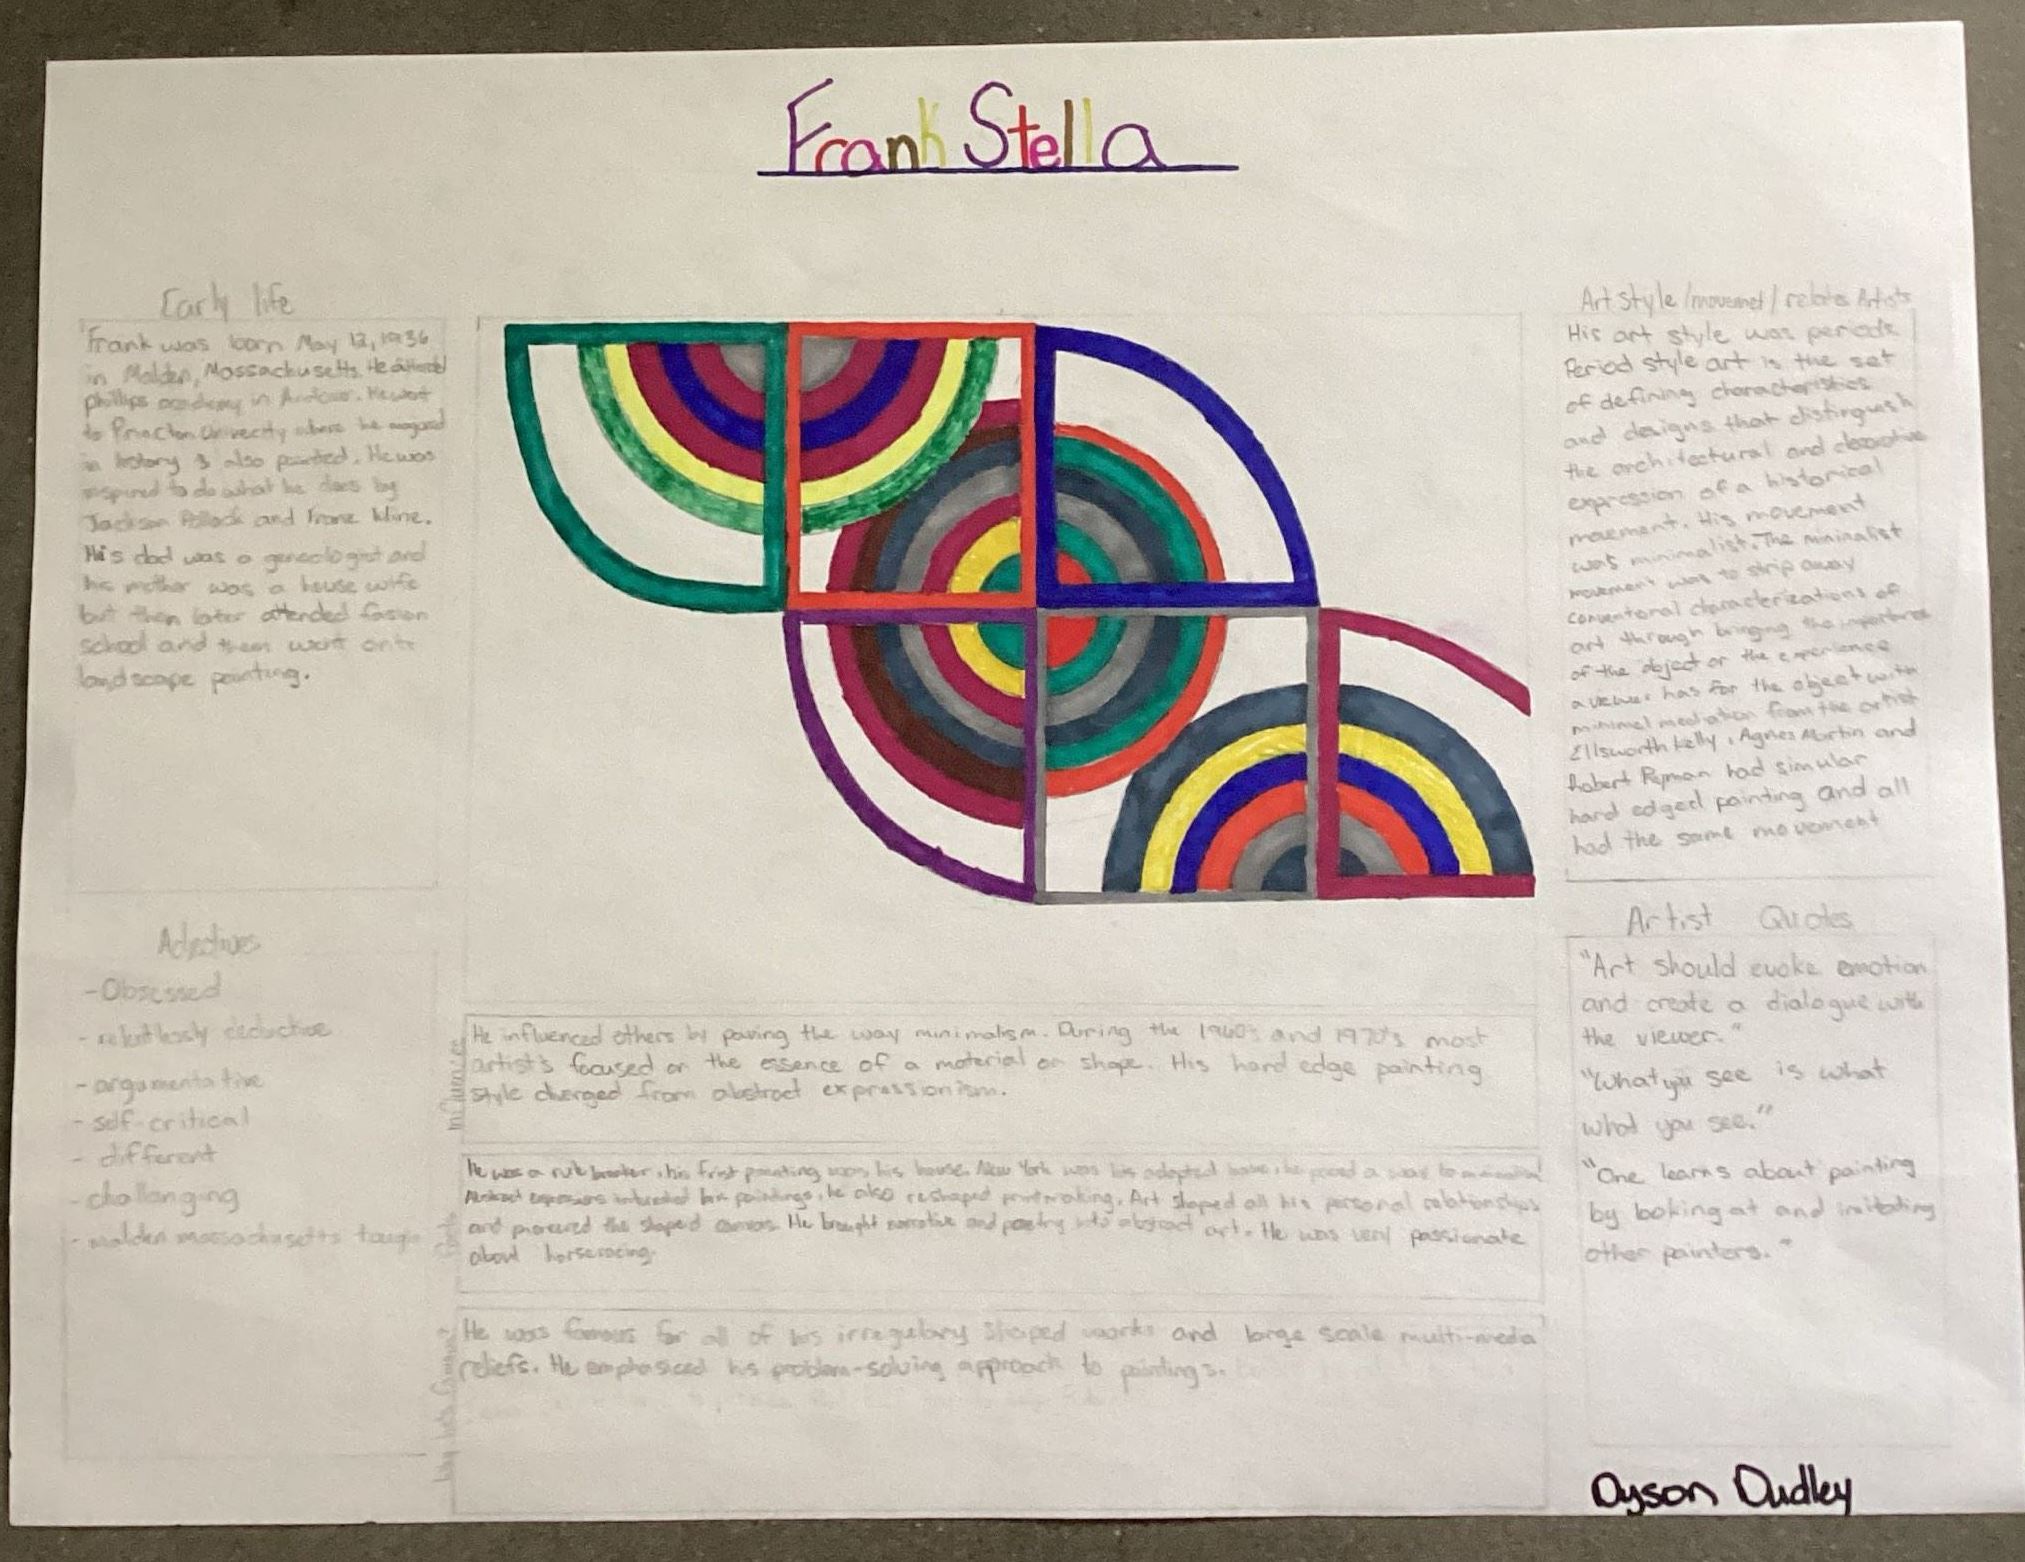 Frank Stella
Early life
Frank was born May 12, 1936
in Malden, Massachusetts. He
phillips academy in He went
to where he
in history & also painted. He was
inspired to do what he does by
Jackson Pollock and Franz kline.
His dad was a genecologist and
his mother was a house wife
but then later attended fasion
school and them went onto
landscape painting.
Adjectives
-Obsessed
- relentlessly deductive
- argumentative
- self-critical
- different
- challanging
- malden massachusetts tough
Influences
He influenced others by paving the way minimalism. During the 1960's and 1970's most
artist's focused on the essence of a material or shape. His hard edge painting
style diverged from abstract expressionism.
facts
He was a rule breaker, his frist painting was his house. New York was his adopted home, he paved a way to
his paintings, he also reshaped printmaking. Art shaped all his personal relationships
and pioneered the shaped canvas. He brought narrative and poetry into abstract art. He was very passionate
about horseracing.
He was famous for all of his irregulary shaped works and large scale multi-media
reliefs. He emphasiced his problem-solving approach to paintings.
Art Style /movemet/ relates Artists
His art style was periods.
Period style art is the set
of defining characteristics
and designs that distinguish
the architectural and decorative
expression of a historical
movement. His movement
was minimalist. The minimalist
movement was to strip away
conventional characterizations of
art through bringing the importance
of the object or the experience
a viewer has for the object with
minimel mediation from the artist
Ellsworth kelly, Agnes Martin and
Robert Ryman had simular
hard edged painting and all
had the same movement
Artist Quotes
"Art should evoke emotion
and create a dialogue with
the viewer."
"What you see is what
what you see."
"One learns about painting
by looking at and imitating
other painters."
Dyson Dudley